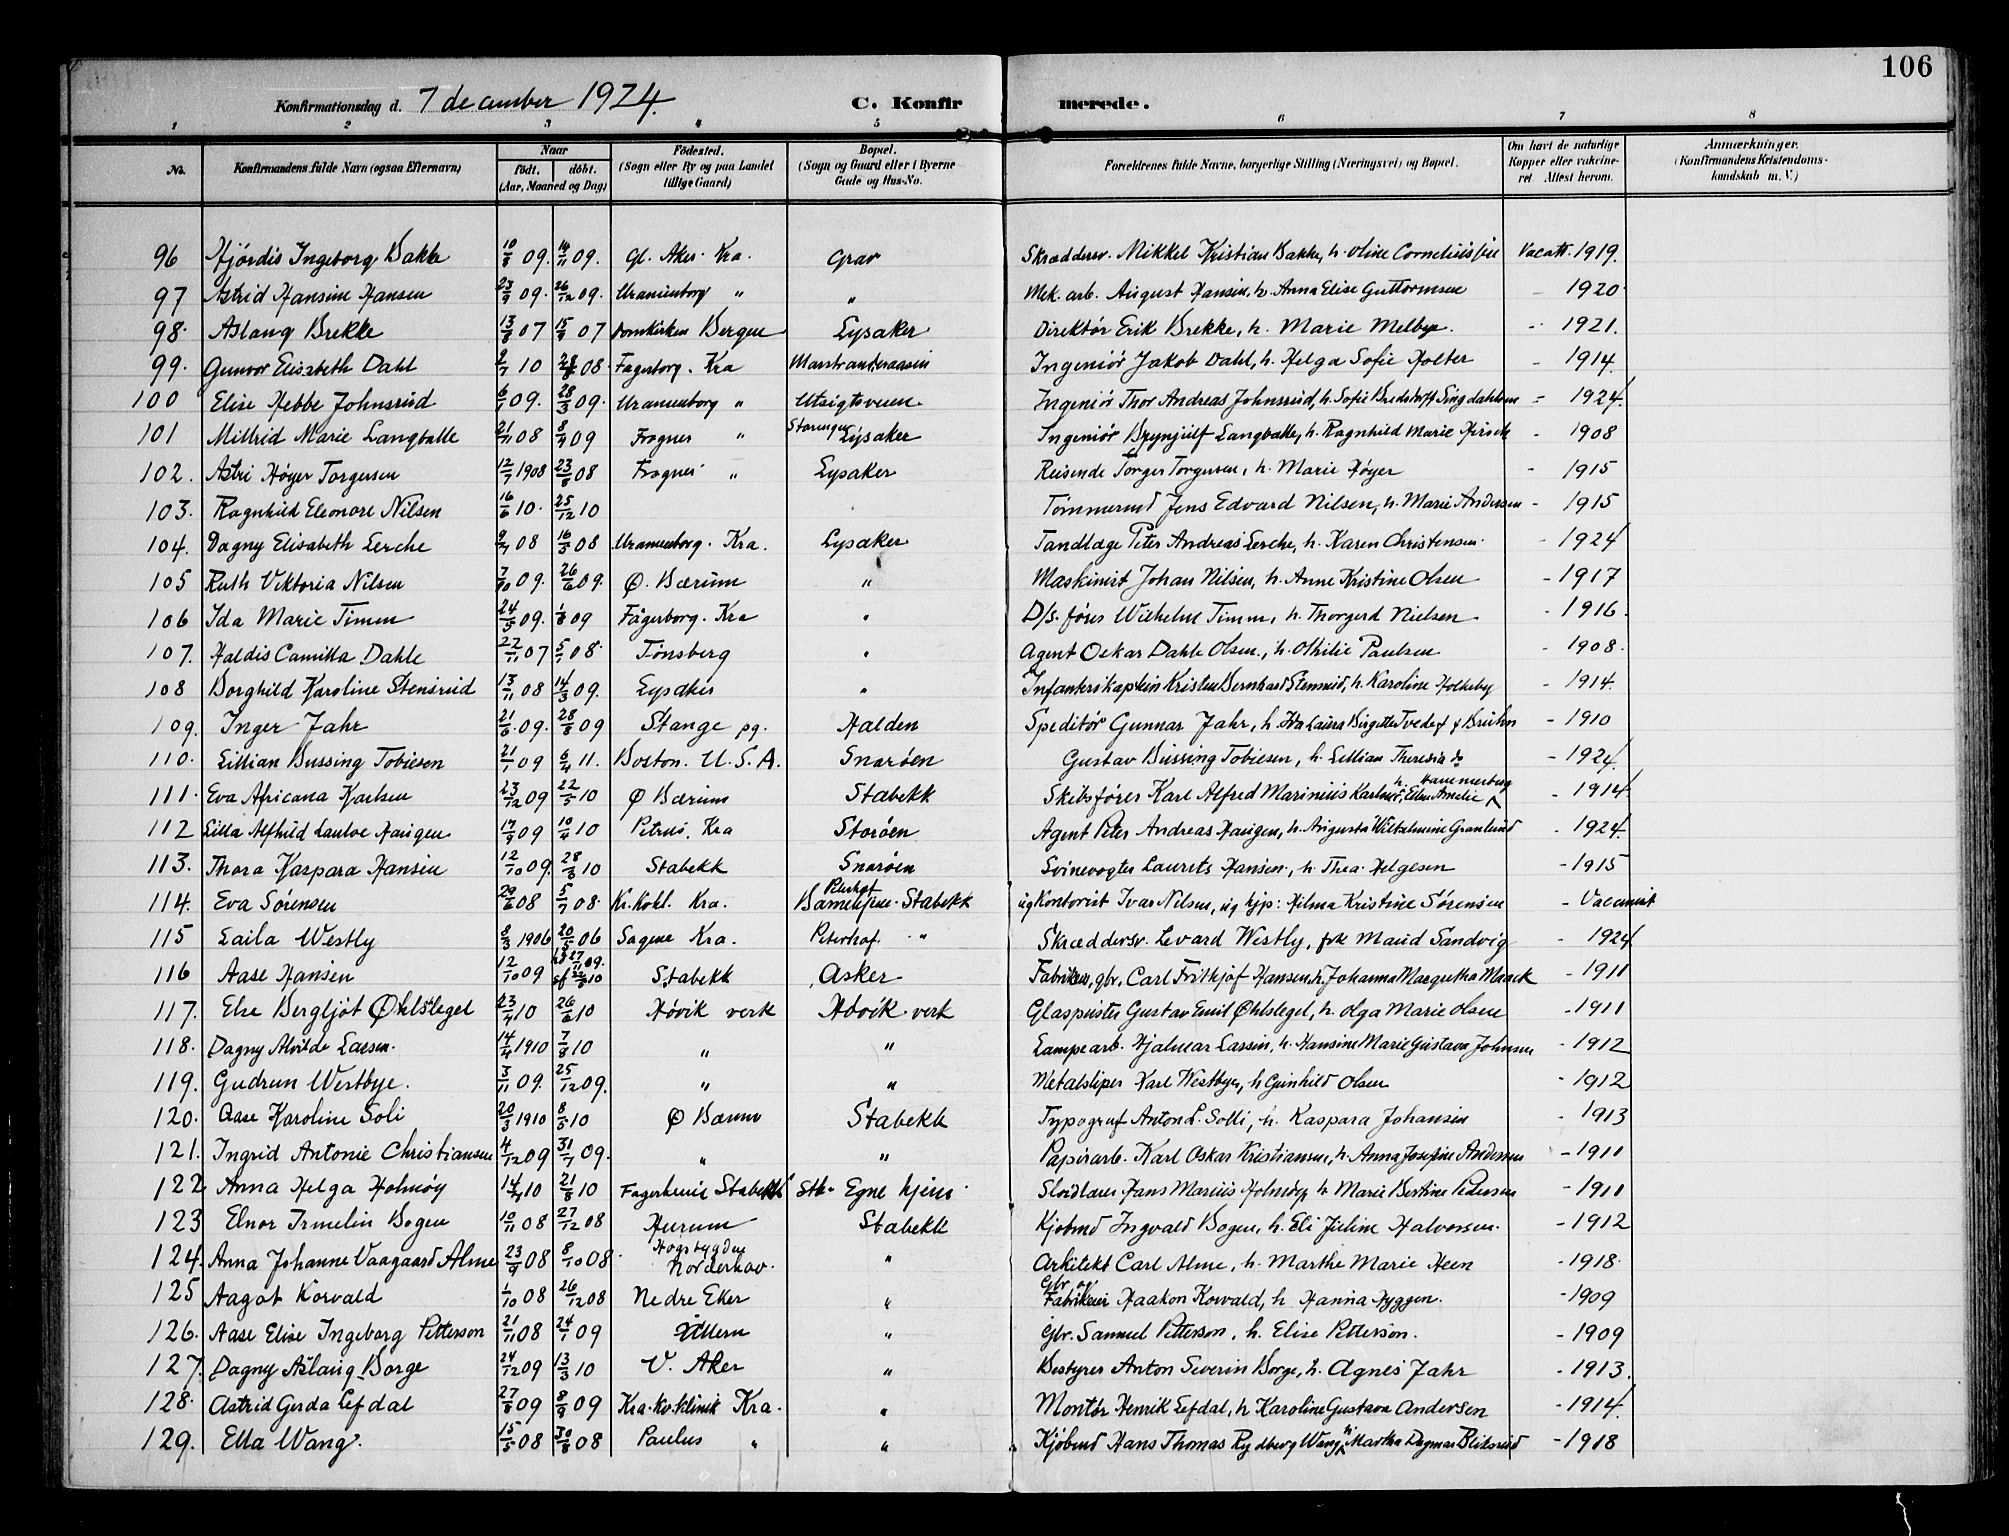 106
Konfirmationsdag d. 7 december 1924. C. Konfirmerede.
1 2 3 4 5 6 7 8
No. Konfirmandens fulde Navn (ogsaa Efternavn) Naar født. døbt. (Aar, Maaned og Dag) Fødested. (Sogn eller By og paa Landet tillige Gaard) Bopæl. (Sogn og Gaard eller i Byerne Gade og Hus-No. Forældrenes fulde Navne, borgerlige Stilling (Næringsvei) og Bopæl. Om havt de naturlige Kopper eller vakcineret Attest herom. Anmærkninger. (Konfirmandens Kristendomskundskab m. V.)
96 Hjördis Ingeborg Bakke 10/8 09. 14/11 09. Gl. Aker. Kra. Grav Skræddersv. Mikkel Kristian Bakke, h. Oline Corneliussen Vacatt. 1919.
97 Astrid Hansine Hansen 23/9 09. 26/12 09. Uranienborg " " Mek. arb. August Hansen, h. Anna Elise Guttormsen - 1920
98. Aslaug Brekke 13/8 07 15/9 07 Domkirken Bergen Lysaker Direktör Erik Brekke, h. Marie Melbye. - 1921.
99. Gunvor Elisabeth Dahl 2/7 10 08. Fagerborg. Kra Marstranderaasen Ingeniör Jakob Dahl, h. Helga Sofie Holter - 1914.
100 Elise Hebbe Johnsrud 6/1 09. 28/3 09. Uranienborg " Utsigtsveien Ingeniör Thor Andreas Johnsrud, h. Sofie Bredstrup Singdahlsen - 1924.
101 Milhrid Marie Langballe 21/11 08 8/4 09 Frogner " Lysaker Ingeniör Brynjulf Langballe, h. Ragnhild Marie Hirsch - 1908
102. Astri Höyer Torgersen 12/7 1908 23/8 08 Frogner " Lysaker Reisende Torger Torgersen, h. Marie Höyer - 1915
103. Ragnhild Eleonore Nilsen 16/6 10. 25/12 10 Tömmermd Jens Edvard Nilsen, h. Marie Andersen - 1915
104. Dagny Elisabeth Lerche 9/4 08 16/5 08 Uranienborg. Kra. Lysaker Tandlæge Peter Andreas Lerche, h. Karen Christensen. - 1924
105 Ruth Viktoria Nilsen 7/10 09. 26/6 09. Ø. Bærum " Maskinist Johan Nilsen, h. Anne Kristine Olsen - 1917
106 Ida Marie Timm 24/5 09. 1/8 09 Fagerborg. Kra " D/s. förer Wilhelm Timm, h. Thorgerd Nielsen - 1916.
107. Haldis Camilla Dahle 22/11 07 5/1 08. Tönsberg " Agent Oskar Dahle Olsen, h. Othilie Paulsen - 1908.
108 Borghild Karoline Stensrud 13/11 08 14/3 09. Lysaker " Infanterikaptein Kristen Bernhard Stensrud, h. Karoline Holkeby - 1914.
109. Inger Jahr 21/6 09. 28/8 09 Stange pg. Halden Speditör Gunnar Jahr, h. Ida Laura Birgitte Tvede f. Bruhn - 1910
110. Lillian Bussing Tobiesen 21/1 09 6/4 11. Boston. U.S.A. Snaröen Gustav Bussing Tobiesen, h. Lillian Theresia do - 1924.
111. Eva Africana Karlsen 23/12 09 22/5 10 Ø Bærum Stabekk Skibsförer Karl Alfred Marinius Karlsen, h. Ellen Amelie Hammerberg - 1914
112 Lilla Alfhild Lauloe Haugen 17/9 09 10/4 10 Petrus, Kra Storöen Agent Peter Andreas Haugen, h. Augusta Wilhelmine Granlund - 1924.
113. Thora Kaspara Hansen 12/10 09. 28/8 10 Stabekk Snaröen Svinevogter Laurits Hansen, h. Thea Helgesen - 1915
114. Eva Sörensen 29/6 08 5/7 08. Kr. Kohl. Kra. Peterhof Barnehjem. Stabekk ug Kontorist Ivar Nilsen, ug hjp: Hilma Kristine Sörensen - Vaccinist
115 Laila Westly 8/3 1906 20/5 06 Sagene Kra. Peterhof. " Skræddersv. Levard Westly, frk Maud Sandvig - 1924.
116 Aase Hansen 12/10 09 27/11 09. 10 Stabekk Asker Fabrikeier, gbr. Carl Fritkjof Hansen, h. Johanna Margretha Maack - 1911
117. Else Bergljót Öhlslegel 23/4 10 26/6 10 Hövik verk Hövik verk Glaspuster Gustav Emil Öhlslegel, h. Olga Marie Olsen - 1911
118. Dagny Alvilde Larsen. 14/4 1910 7/8 10 " " Lampearb. Hjalmar Larsen, h. Hansine Marie Gustava Johnsen - 1912
119. Gudrun Westbye. 3/11 09. 25/12 09. " " Metalsliper Karl Westbye, h Gunhild Olsen - 1912
120. Aase Karoline Soli 20/3 1910 8/5 10 Ø Bærum Stabekk Typograf Anton L. Solli, h. Kaspara Johansen - 1913
121. Ingrid Antonie Christiansen 4/12 09 31/7 09. " " Papirarb. Karl Oskar Kristiansen, h. Anna Josefine Andersen - 1911
122 Anna Helga Holmöy 14/4 10 21/8 10 Fagerheim Stabekk Stb. Egne hjem Slöidlærer Hans Marius Holmöy, h Marie Bertine Pedersen - 1911
123 Elnor Irmelin Bogen 10/11 08 27/12 08 Hurum Stabekk Kjöbmd Ingvald Bogen, h. Eli Juline Halvorsen. - 1912
124. Anna Johanne Vaagaard Alme 23/9 08 8/10 08. Hogsbygden Norderhov. " Arkitekt Carl Alme, h. Marthe Marie Heen - 1918.
125 Aagot Korvald 1/10 08 26/12 08 Nedre Eker " Gbr. og Fabrikeier Haakon Korvald, h Hanna Hyggen. - 1909
126. Aase Elise Ingeborg Petterson 21/11 08 24/1 09 Ullern " Gbr. Samuel Petterson, h. Elise Petterson. - 1909
127. Dagny Aslaug Borge 24/12 09 13/3 10 V. Aker " Bestyrer Anton Severin Borge, h. Agnes Jahr - 1913.
128. Astrid Gerda Lefdal 27/8 09 8/9 09 Kra. Kv. klinik Kra. " Montör Henrik Lefdal, h Karoline Gustava Andersen - 1914.
129. Ella Wang. 15/5 08 30/8 08 Paulus " " Kjöbmd Hans Thomas Rydberg Wang, h Martha Dagmar Bliksrud - 1918